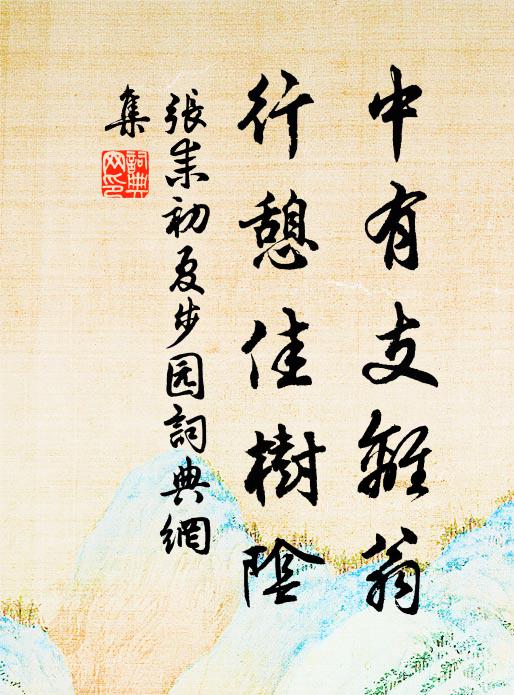 中有支離翁
行憩佳樹陰
張耒初夏步园詞典網
集
詞典
网印